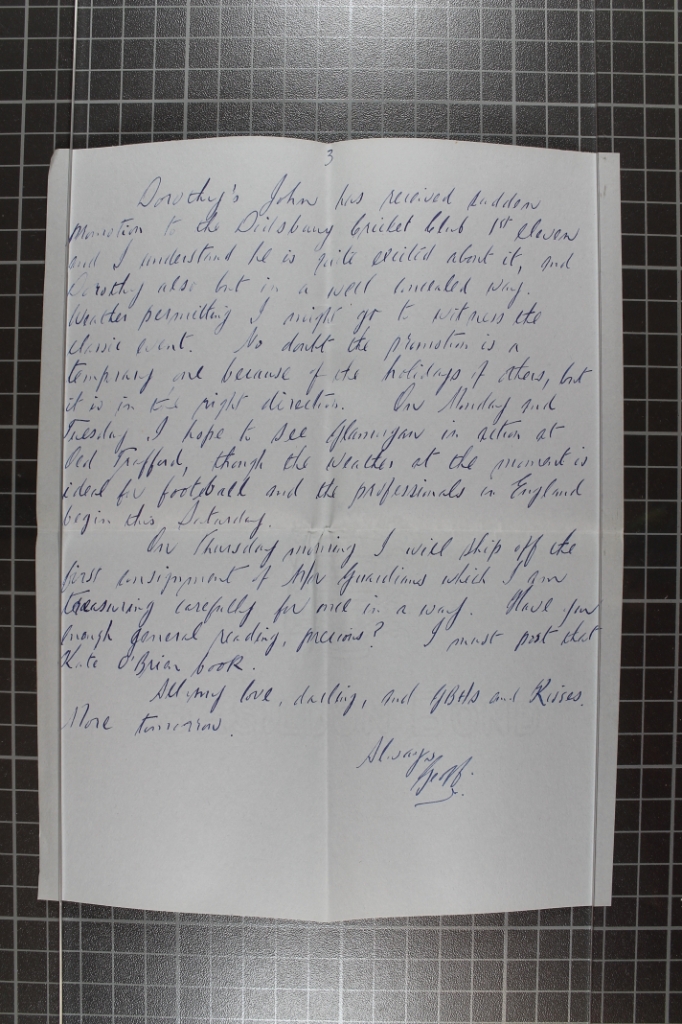 3
Dorothy's John has received sudden
promotion to the Didsbury Cricket Club 1st eleven
and I understand he is quite excited about it, and
Dorothy also but in a well concealed way.
Weather permitting I might go to witness the
classic event. No doubt the promotion is a
temporary one because of the holidays of others, but
it is in the right direction. On Monday and
Tuesday I hope to see Glamorgan in action at
Old Trafford, though the weather at the moment is
ideal for football and the professionals in England
begin this Saturday.
On Thursday morning I will ship off the
first consignment of Mr Guardians which I am
treasuring carefully for once in a way. Have you
enough general reading, precious? I must post that
Kate O'Brian book.
All my love, darling, and GBHs and Kisses.
More tomorrow.
Always
Geoff.